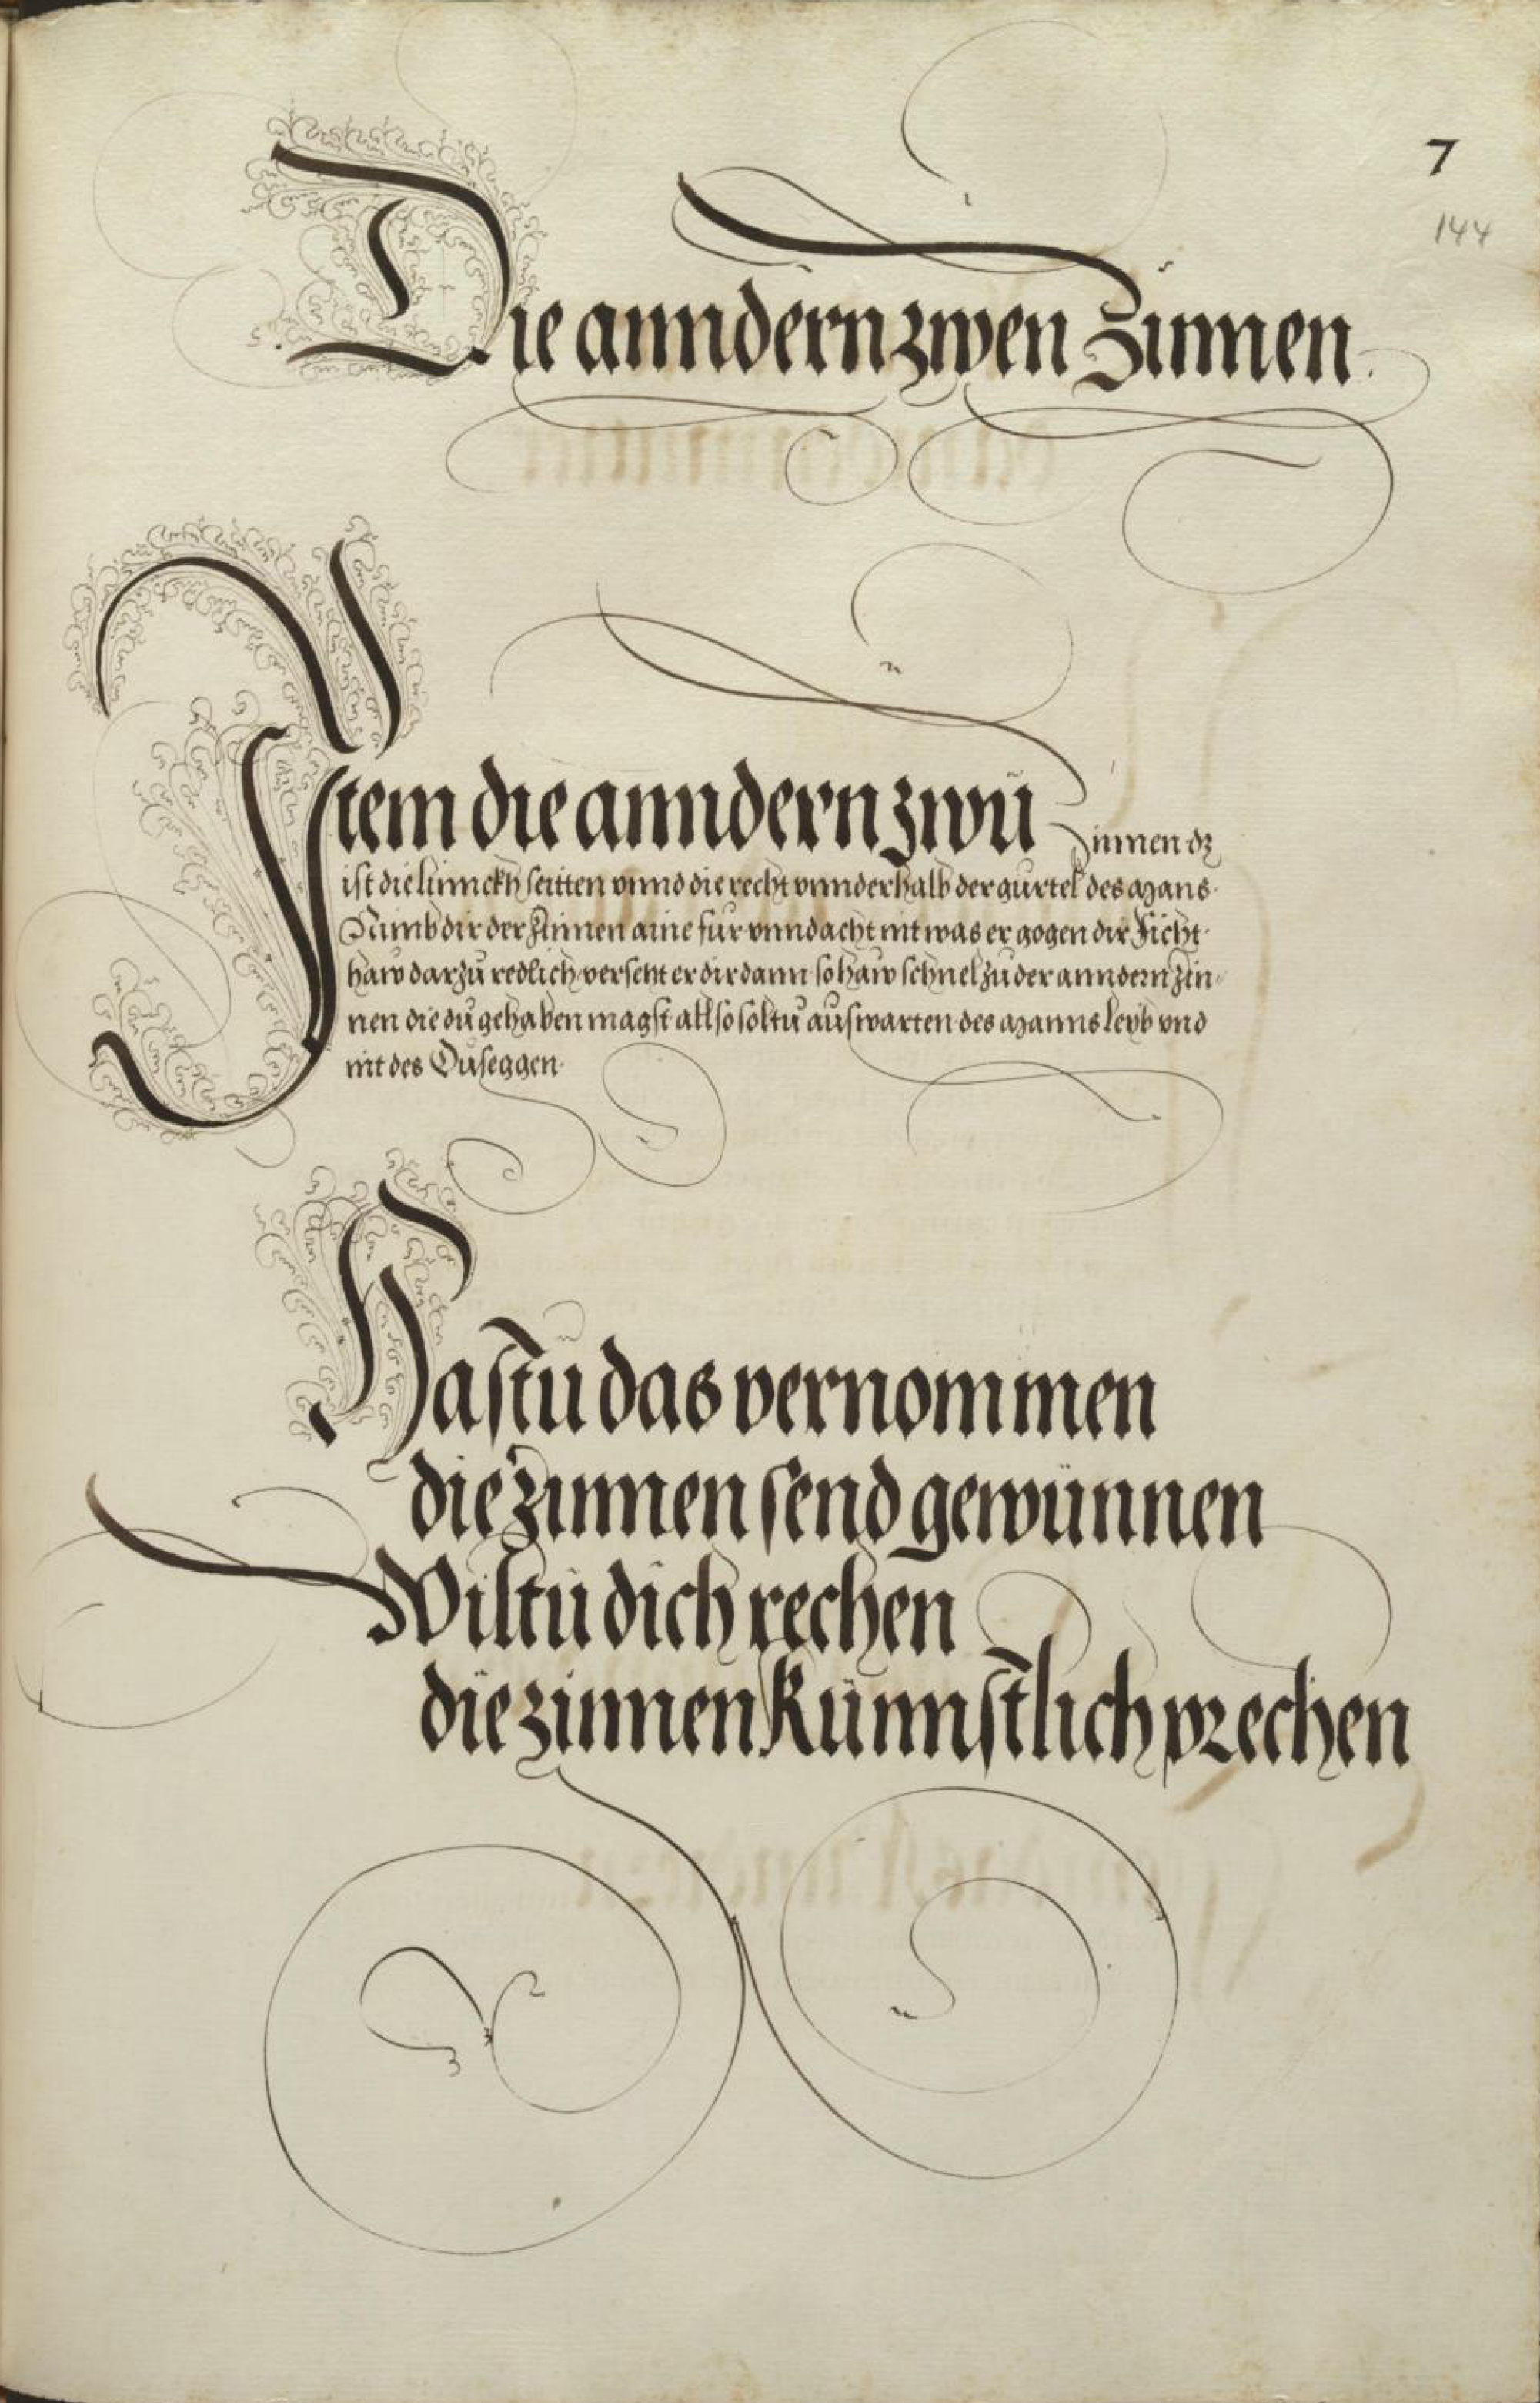 7
144
Die anndern zwen Zinnen.
Item die anndern zwu Zinnen dz
ist die linnckh seitten vnnd die recht vnnderhalb der gurtel des Mans.
Nimb dir der Zinnen aine fur vnnd acht nit was er gogen dir Ficht.
haw darzu redlich versetzt er dir dann so haw schnel zu der anndern Zin-
nen die du gehaben magst allso soltu auswarten des Manns leyb vnd
nit des Duseggen.
Hastu das vernommen
die zinnen send gewunnen
Wiltu dich rechen
die zinnen Kunnstlich prechen